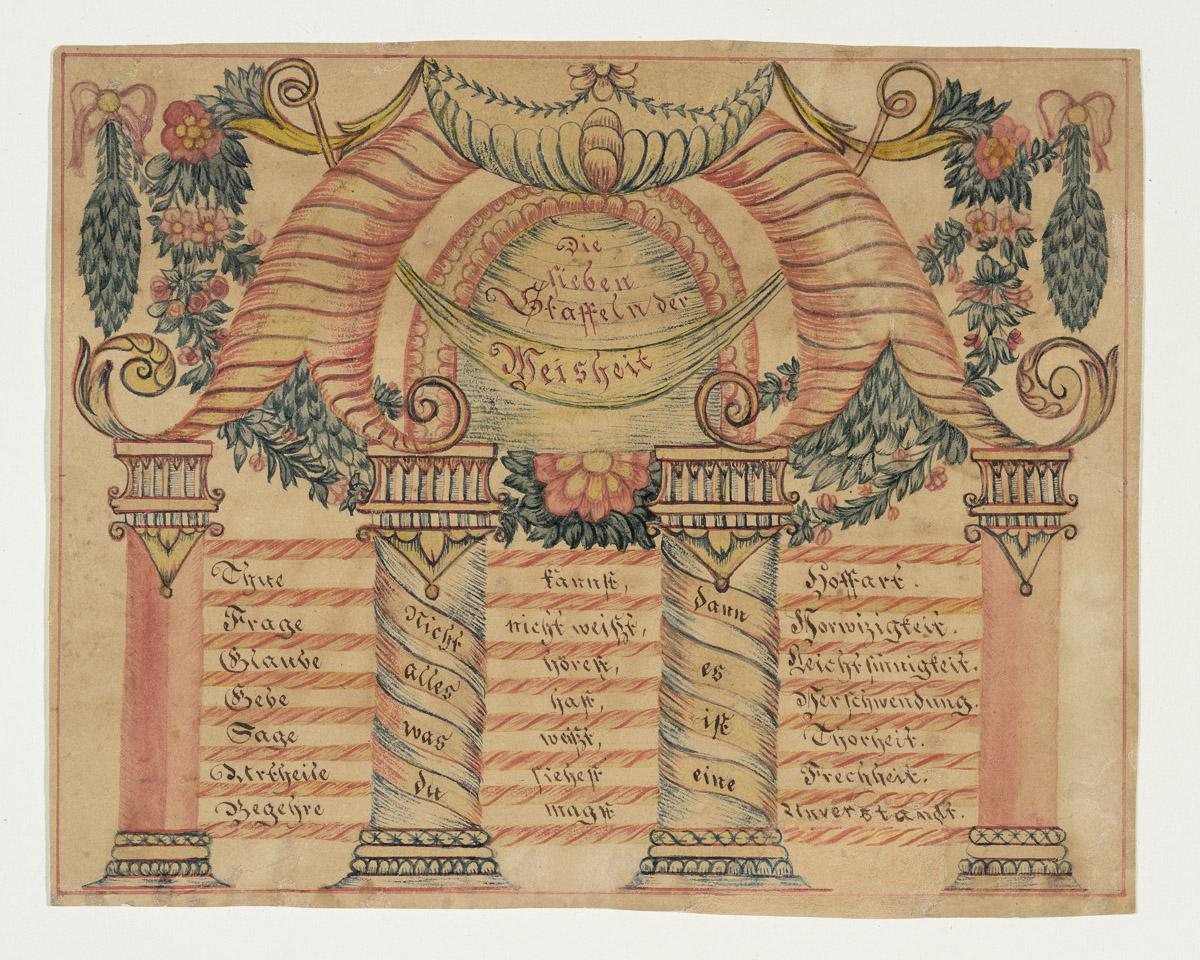 Die
sieben
Staffeln der
Weisheit
Thue
Frage
Glaube
Gebe
Sage
Urtheile
Begehre
Nicht
alles
was
du
kannst,
nicht weißt,
hörest,
hast,
weißt,
siehest
magst
dann
es
ist
eine
Hoffart.
Vorwizigkeit.
Leichtsinnigkeit.
Verschwendung.
Thorheit.
Frechheit.
Unverstandt.